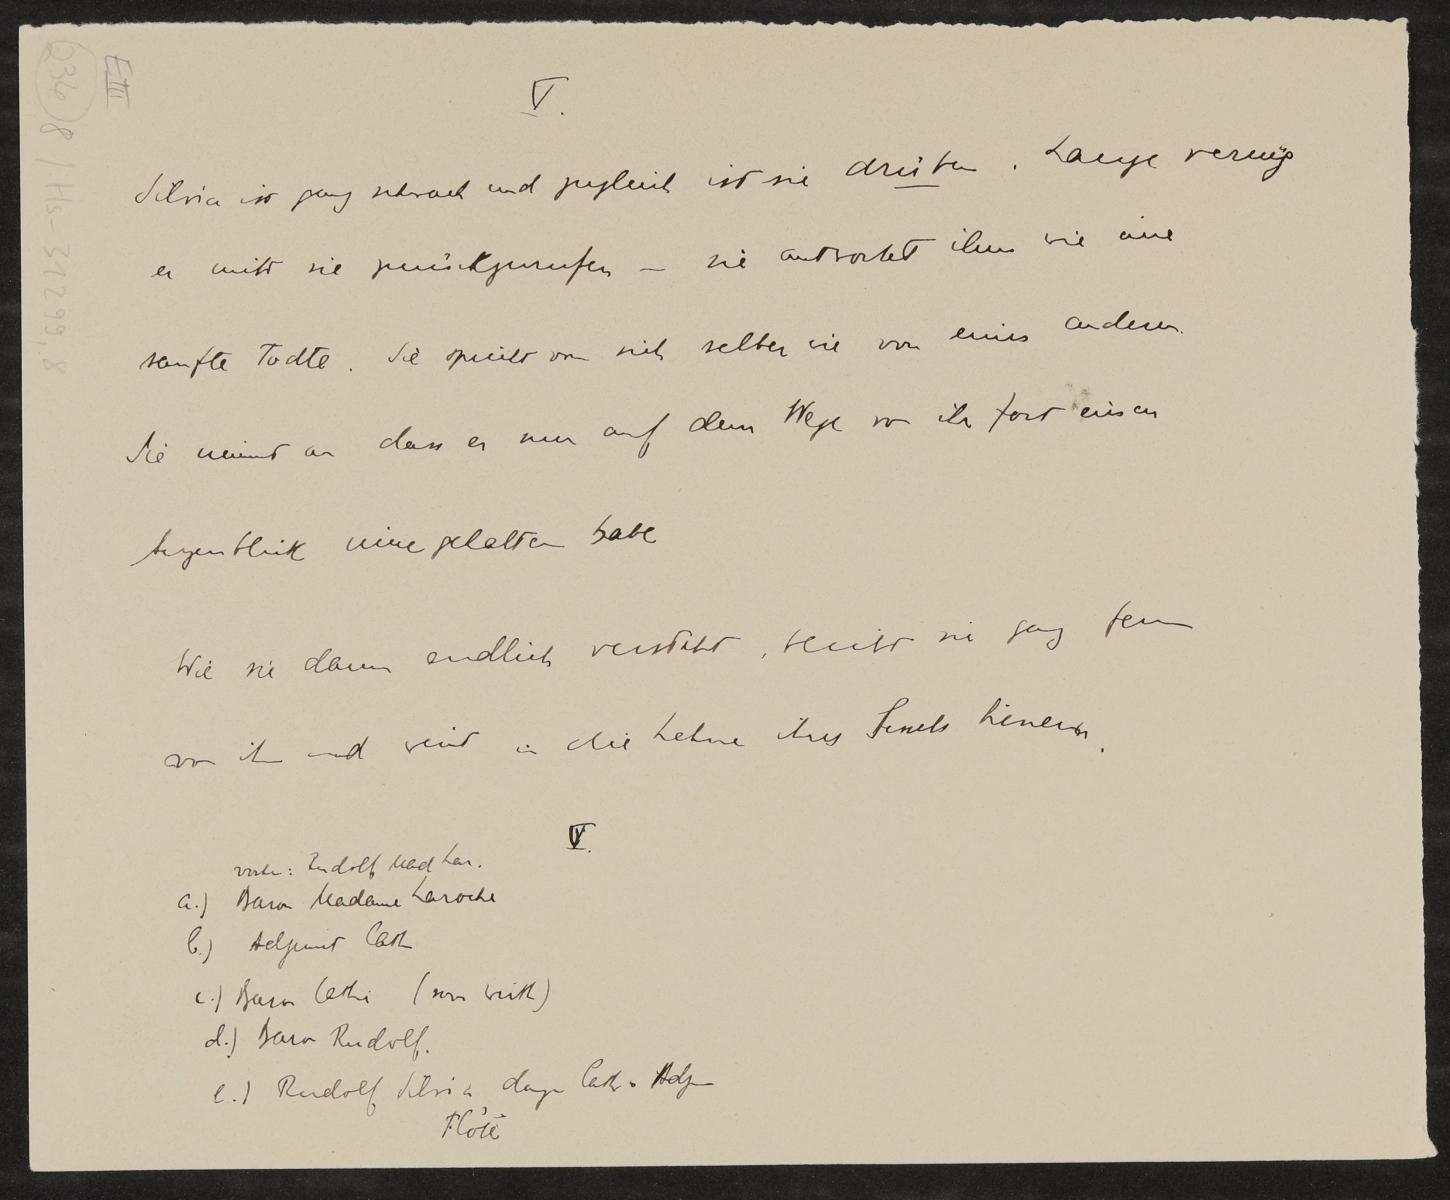 E III
236 8 / Hs-31299,8
V.
Silvia ist ganz schwach und zugleich ist sie drüben. Lange vermag
er nicht sie zurückzurufen — sie antwortet ihm wie eine
sanfte Todte. Sie spricht von sich selber wie von einer anderen.
Sie nimmt an dass er nur auf dem Wege von ihr fort einen
Augenblick innegehalten habe
Wie sie dann endlich versteht, bleibt sie ganz fern
von ihm und weint in die Lehne ihres Sessels hinein.
V.
vorher: Rudolf Mad Lar.
a.) Baron Madame Laroche
b.) Adjunct Cath
c.) Baron Cathi (vom Wirth)
d.) Baron Rudolf.
e.) Rudolf Silvia dazu Cath. Adj
Flöte